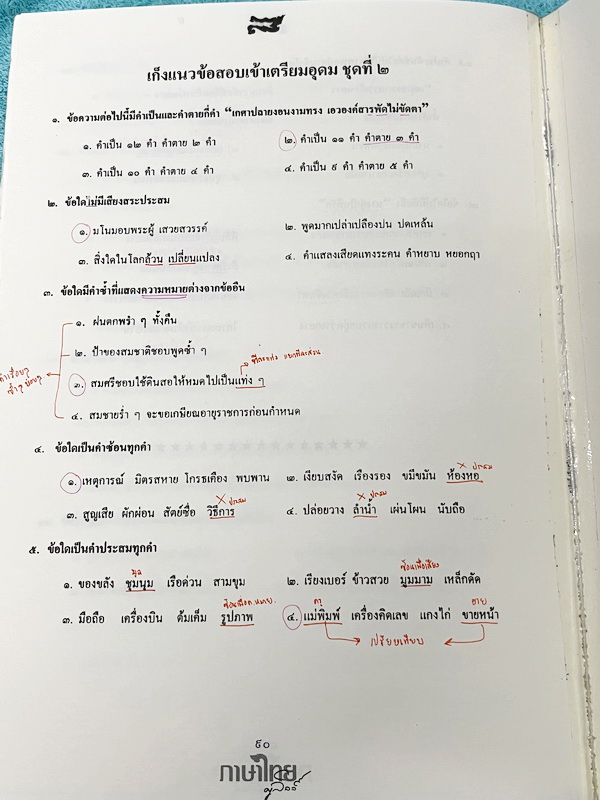 เก็งแนวข้อสอบเข้าเตรียมอุดม ชุดที่ ๒
๑. ข้อความต่อไปนี้มีคำเป็นและคำตายกี่คำ “เกศาปลายงอนงามทรง เอวองค์สารพัดไม่ขัดตา”
๑. คำเป็น ๑๒ คำ คำตาย ๒ คำ ๒. คำเป็น ๑๑ คำ คำตาย ๓ คำ
๓. คำเป็น ๑๐ คำ คำตาย ๔ คำ ๔. คำเป็น ๙ คำ คำตาย ๕ คำ
๒. ข้อใดไม่มีเสียงสระประสม
๑. มโนมอบพระผู้ เสวยสวรรค์ ๒. พูดมากเปล่าเปลืองปน ปดเหล้น
๓. สิ่งใดในโลกล้วน เปลี่ยนแปลง ๔. คำแสลงเสียดแทงระคน คำหยาบ หยอกฤา
๓. ข้อใดมีคำซ้ำที่แสดงความหมายต่างจากข้ออื่น
๑. ฝนตกพรำ ๆ ทั้งคืน
๒. ป้าของสมชาติชอบพูดซ้ำ ๆ
๓. สมศรีชอบใช้ดินสอให้หมดไปเป็นแท่ง ๆ
๔. สมชายร่ำ ๆ จะขอเกษียณอายุราชการก่อนกำหนด
๔. ข้อใดเป็นคำซ้อนทุกคำ
× ประสม
๑. เหตุการณ์ มิตรสหาย โกรธเคือง พบพาน ๒. เงียบสงัด เรืองรอง ขมีขมัน ห้องหอ
× ประสม × ประสม
๓. สูญเสีย ผักผ่อน สัตย์ซื่อ วิธีการ ๔. ปล่อยวาง ลำน้ำ เผ่นโผน นับถือ
๕. ข้อใดเป็นคำประสมทุกคำ
มูล ซ้อนเพื่อเสียง
๑. ของขลัง ชุมนุม เรือด่วน สามขุม ๒. เรียงเบอร์ ข้าวสวย มูมมาม เหล็กดัด
ครู ขาย
๓. มือถือ เครื่องบิน ต้มเค็ม รูปภาพ ๔. แม่พิมพ์ เครื่องคิดเลข แกงไก่ ขายหน้า
เปรียบเทียบ
๙๐
ภาษาไทย